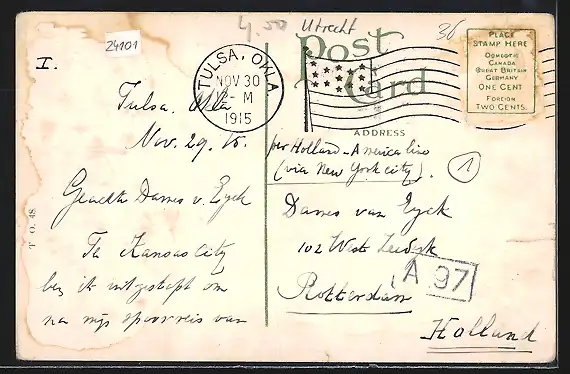 24101
4.50 Utrecht
36
I.
Post
Card
ADDRESS
PLACE
STAMP HERE
DOMESTIC
CANADA
GREAT BRITAIN
GERMANY
ONE CENT
FOREIGN
TWO CENTS.
TULSA, OKLA.
NOV 30
12- M
1915
Tulsa. Okla
Nov. 29. 15.
Geachte Dames v. Eyck
Te Kansas City
ben ik uitgestapt om
na mijn spoorreis van
T. O. 48
per Holland-America lijn
(via New York city).
1
Dames van Eyck
102 West Zeedyk
A 97
Rotterdam
Holland